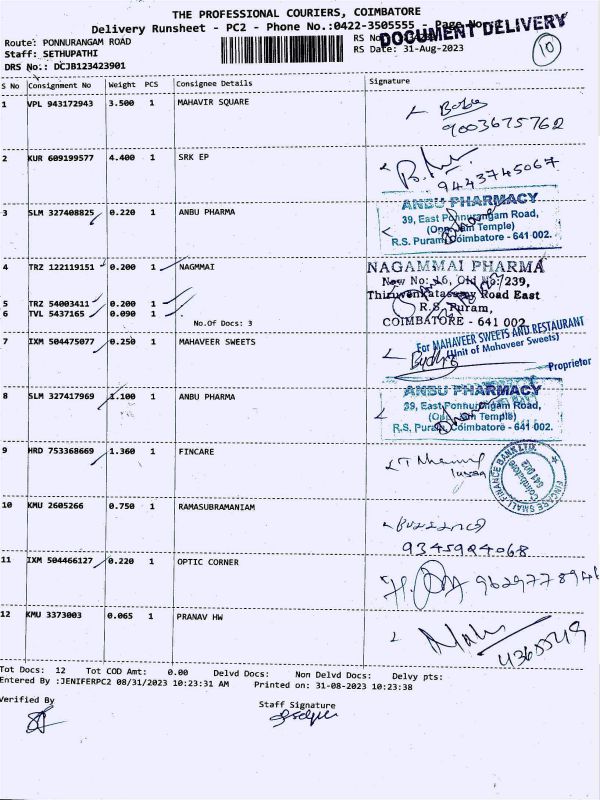 THE PROFESSIONAL COURIERS, COIMBATORE
Delivery Runsheet - PC2 - Phone No.:0422-3505555 - Page No.:
DOCUMENT DELIVERY
Route: PONNURANGAM ROAD RS No
Staff: SETHUPATHI RS Date: 31-Aug-2023 10
DRS No.: DCJB123423901
S No Consignment No Weight PCS Consignee Details Signature
1 VPL 943172943 3.500 1 MAHAVIR SQUARE
9003675762
2 KUR 609199577 4.400 1 SRK EP
9443745067
3 SLM 327408825 0.220 1 ANBU PHARMA
ANBU PHARMACY
39, East Ponnurangam Road,
(Opp. Temple)
R.S. Puram, Coimbatore - 641 002.
4 TRZ 122119151 0.200 1 NAGMMAI
NAGAMMAI PHARMA
New No: 16, Old No: 239,
Thiruvenkatasamy Road East
R.S. Puram,
COIMBATORE - 641 002
5 TRZ 54003411 0.200 1
6 TVL 5437165 0.090 1
No.Of Docs: 3
7 IXM 504475077 0.250 1 MAHAVEER SWEETS
For MAHAVEER SWEETS AND RESTAURANT
(Unit of Mahaveer Sweets)
Proprietor
8 SLM 327417969 1.100 1 ANBU PHARMA
ANBU PHARMACY
39, East Ponnurangam Road,
(Opp. Temple)
R.S. Puram, Coimbatore - 641 002.
9 HRD 753368669 1.360 1 FINCARE
FINCARE SMALL FINANCE BANK LTD.
Coimbatore
641 002
10 KMU 2605266 0.750 1 RAMASUBRAMANIAM
9345924068
11 IXM 504466127 0.220 1 OPTIC CORNER
9629778946
12 KMU 3373003 0.065 1 PRANAV HW
4360549
Tot Docs: 12 Tot COD Amt: 0.00 Delvd Docs: Non Delvd Docs: Delvy pts:
Entered By :JENIFERPC2 08/31/2023 10:23:31 AM Printed on: 31-08-2023 10:23:38
Verified By Staff Signature